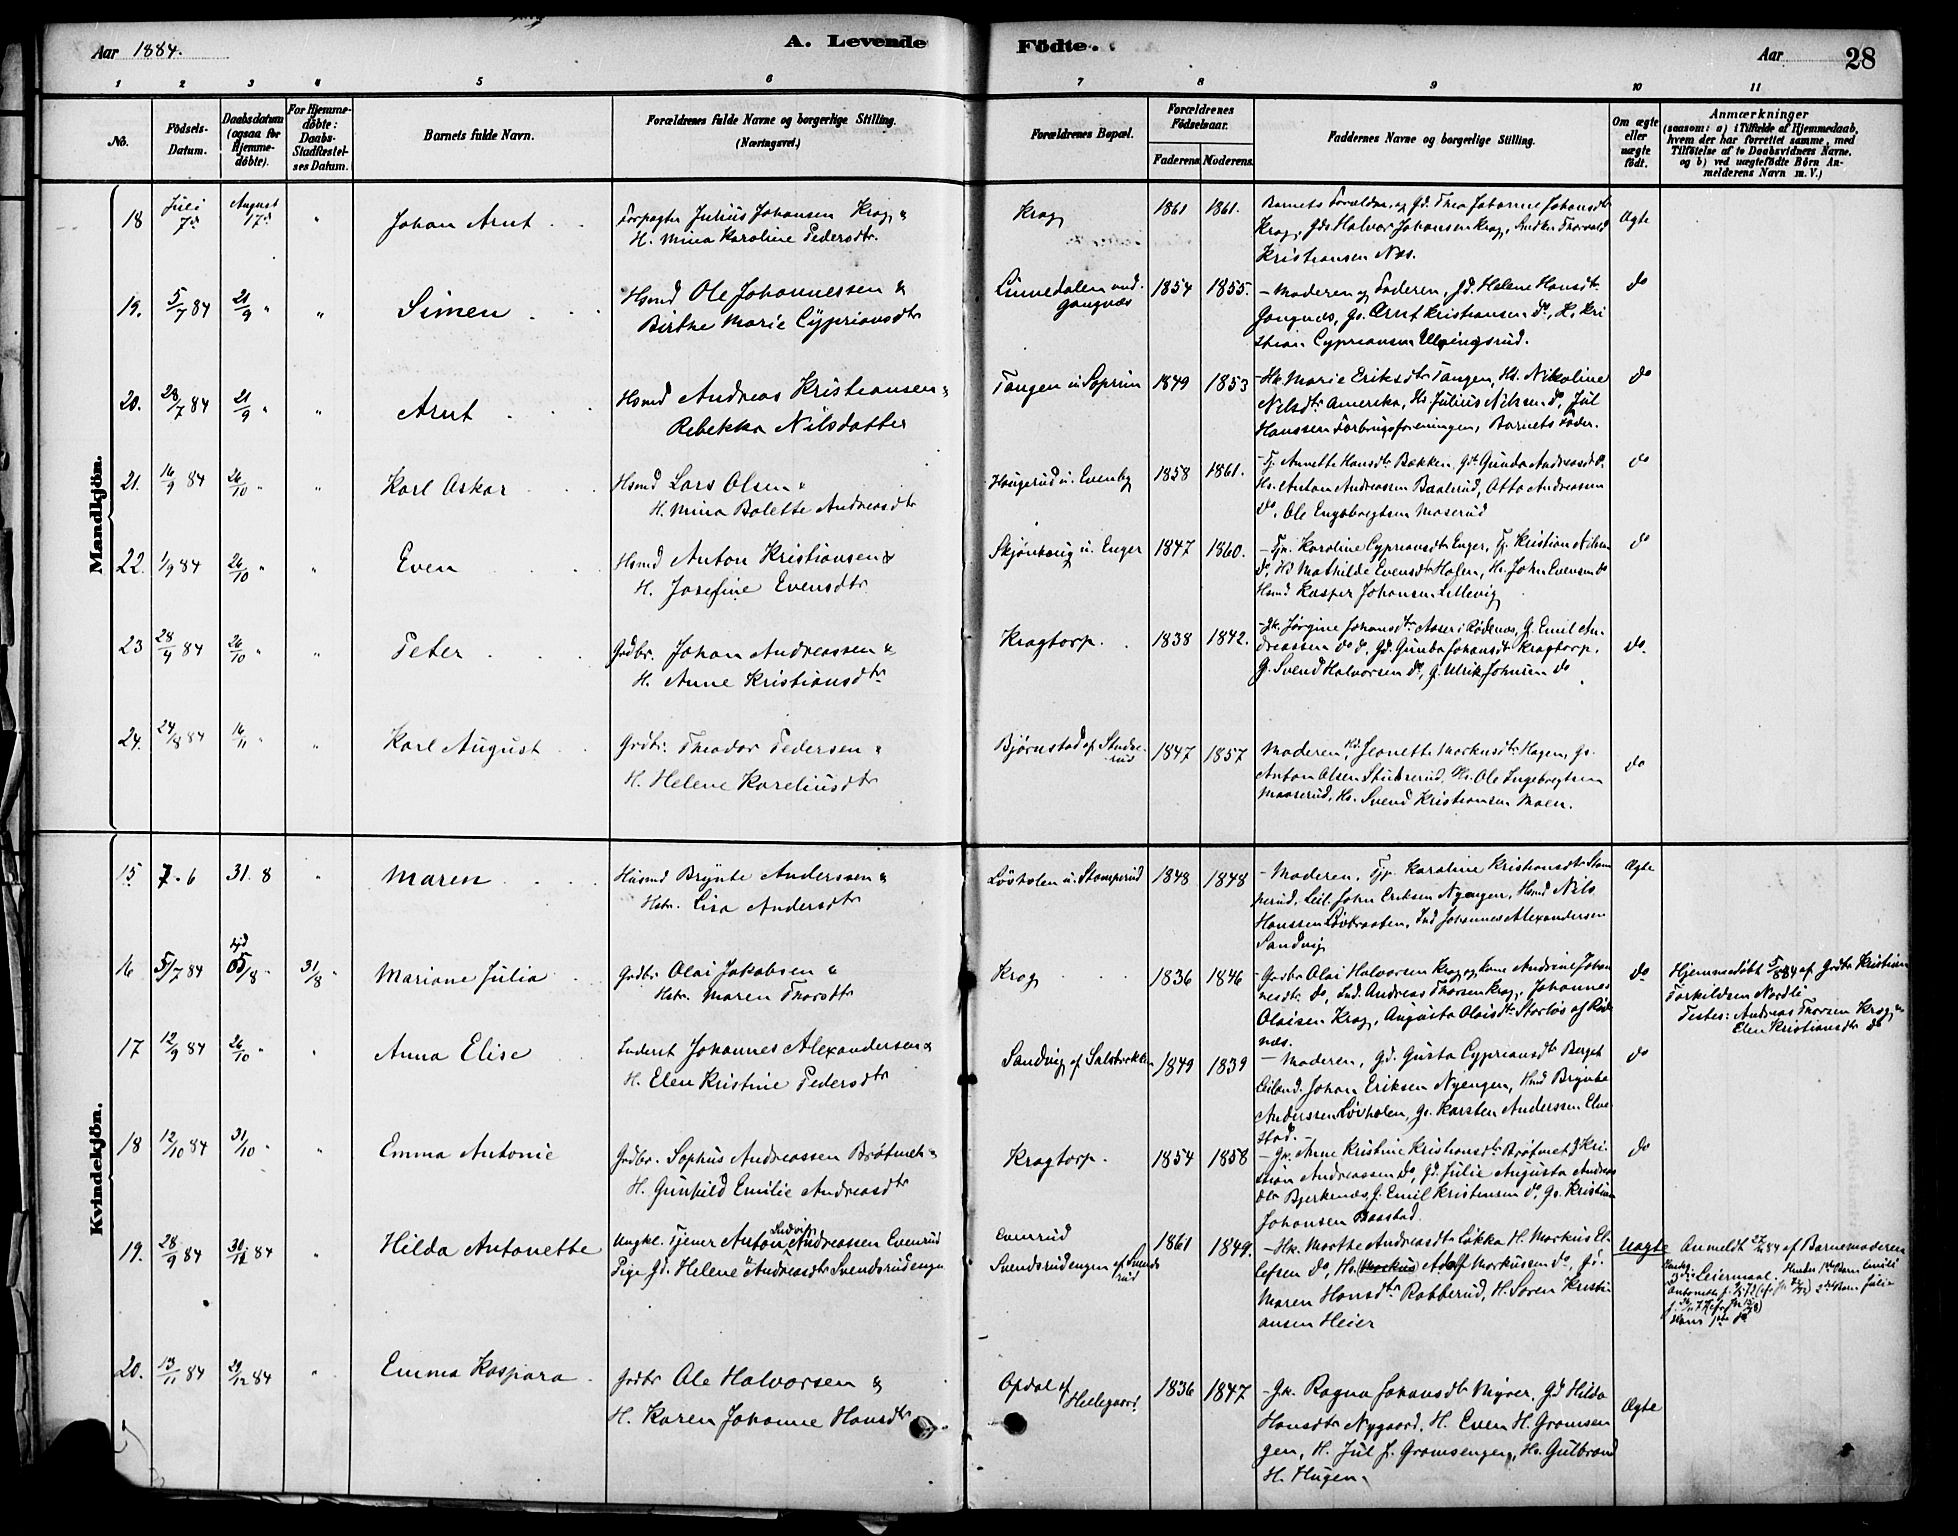 Aar 1884.
A. Levende
Födte.
Aar
28
1 2 3 4 5 6 7 8 9 10 11
No.
Födsels-
Datum.
Daabsdatum
(ogsaa for
Hjemme-
döbte).
For Hjemme-
döbte:
Daabs-
Stadfæstel-
ses Datum.
Barnets fulde Navn.
Forældrenes fulde Navne og borgerlige Stilling.
(Næringsvei.)
Forældrenes Bopæl.
Forældrenes
Födselsaar.
Faderens. Moderens.
Faddernes Navne og borgerlige Stilling.
Om ægte
eller
uægte
födt.
Anmærkninger
(saasom: a) i Tilfælde af Hjemmedaab,
hvem der har forrettet samme, med
Tilföielse af to Daabsvidners Navne.
og b) ved uægtefödte Börn An-
melderens Navn m. V.)
Mandkjön.
18 Juli 7de August 17de " Johan Arnt
Forpagter Julius Johansen Krog &
H. Mina Karoline Pedersdtr.
Krog 1861 1861.
Barnets Forældre, og Gd. Thea Johanne Johansdtr
Krog, Gds Halvor Johansen Krog, Thorvald
Kristiansen Næs.
Ægte
19. 5/7 84 21/9 " " Simen
Hsmd Ole Johannessen &
Birthe Marie Cypriansdtr
Linnedalen und.
Gangnæs
1854 1855.
- Moderen og Faderen, Gd. Helene Hansdtr.
Gangnæs, Gs. Arnt Kristiansen do, Hs Kri
stian Cypriansen Ulvingsrud.
do
20. 28/7 84 21/9 " " Arnt
Hsmd Andreas Kristiansen &
Rebekka Nilsdatter
Tangen u. Soprim 1849 1853
- Hk. Marie Eriksdtr Tangen, Hd. Nikoline
Nilsdtr Amerika, Hs. Julius Nilsen do, Jul
Hanssen Forbrugsforeningen, Barnets Fader.
do
21. 16/9 84 26/10 " " Karl Oskar
Hsmd Lars Olsen &
H. Mina Bolette Andreasdtr
Haugerud u. Evenby 1858 1861.
- Tj. Annette Hansdtr Bækken, Gdt Gunda Andreasdtr do
Hs. Anton Andreassen Baalerud, Otto Andreassen
do, Ole Engebregtsen Moserud
do
22. 1/9 84 26/10 " " Even
Hsmd Anton Kristiansen &
H. Josefine Evensdtr
Skjönhaug u. Enger 1847 1860.
- Tjp. Karoline Cypriansdtr Enger, Tj. Kristian Nilsen
do, Hd Mathilde Evensdtr Holen, Hs. John Evensen do
Hsmd Kasper Johansen Lillevig
do
23 28/9 84 26/10 " " Peter
Grdbr. Johan Andreassen &
H. Anne Kristiansdtr
Kragtorp. 1838 1842.
- Gk. Jörgine Johansdtr Aaser i Rödenæs, G. Emil An-
dreassen do do, Gd. Gunda Johansdtr Kragtorp.
G. Svend Halvorsen do, G. Ulrik Johnsen do
do.
24. 24/8 84 16/11 " " Karl August
Grdbr. Theodor Pedersen &
H. Helene Kareliusdtr
Björnstad af Studse-
rud
1847 1857
Moderen, Hd. Jeanette Markusdtr Hagen, Gs.
Anton Olsen Stubsrud, Hs. Ole Ingebregtsen
Maaserud, Hs. Svend Kristiansen Moen.
do
Kvindekjön.
15 7.6 31.8 " Maren
Husmd Brynte Anderssen &
Hstr. Lisa Andersdtr
Lövholen u. Stomperud 1848 1848
- Moderen, Tjp. Karoline Kristiansdtr Stom
perud, Leil. John Eriksen Nyengen, Hsmd Nils
Hanssen Lövbraaten, Ind Johannes Alexandersen
Sandvig
Ægte
16 5/7 84 5/8 " 31/8 " Mariane Julia
Grdbr Olai Jakobsen &
Hstr. Maren Thorsdtr
Krog 1836 1846
- Grdbr Olai Halvorsen Krog og Kone Andrine Johan
nesdtr do, Ind. Andreas Thorsen Krog, Johannes
Olaisen Krog, Augusta Olaisdtr Storlös af Röde
næs.
do
Hjemmedöbt 5/8 84 af Grdbr Kristian
Torkildsen Nordli
Testes: Andreas Thorsen Krog &
Elen Kristiansdtr do
17 12/9 84 26/10 " " Anna Elise
Inderst Johannes Alexandersen &
H. Elen Kristine Pedersdtr
Sandvig af Salsbækken 1849 1839
- Moderen, Gd. Gusta Cypriansdtr Berget
Leilend. Johan Eriksen Nyengen, Hmd Brynte
Anderssen Lövholen, Gs. Karsten Anderssen Elve
stad.
do
18 12/10 84 31/10 " " Emma Antonie
Grdbr. Sophus Andreassen Bröttnet &
H. Gunhild Emilie Andreasdtr
Kragtorp. 1854 1858
- Gk. Anne Kristine Kristiansdtr Bröttnet, G Kri
stian Andreassen do, Gd. Julie Augusta Andreas
dtr Bjerkenæs, G. Emil Kristiansen do, Gs. Kristian
Johansen Baastad.
do
19. 28/9 84 30/11 84 " Hilda Antonette
Ungkl. Tjener Anton Ludvig Andreassen Evenrud
Pige Gd. Helene Andreasdtr Svendsrudengen
Evenrud
Svendsrudengen af Svends
rud
1861 1849.
- Hk. Marthe Andreasdtr Løkka H. Markus El
lefsen do, Hs. Adolf Markussen do, Gd.
Maren Hansdtr Rabberud, H. Soren Kristi-
ansen Heier
Uægte
Anmeldt 27/11 84 af Barnemoderen
Leiermaal.
20. 13/11 84 29/12 84 " Emma Kaspara
Grdbr Ole Halvorsen &
H. Karen Johanne Hansdtr
Opdal af
Hellegaard
1836 1847
- Gk. Ragna Johansdtr Myrer, Gd Hilda
Hansdtr Nygaard, H. Even H. Gramsen
gen, H. Jul J. Gramsengen, Hs. Gulbrand
H. Hugen.
Ægte